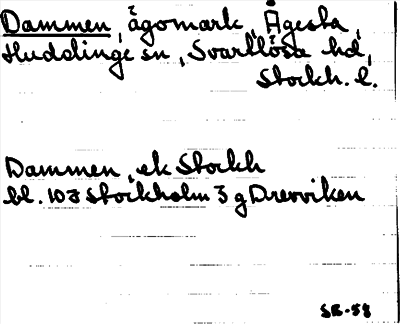 Dammen, ägomark, Ågesta,
Huddinge sn, Svartlösa hd,
Stockh. l.
Dammen, ek Stockh
bl. 10J Stockholm 3 g Drevviken
SB-58